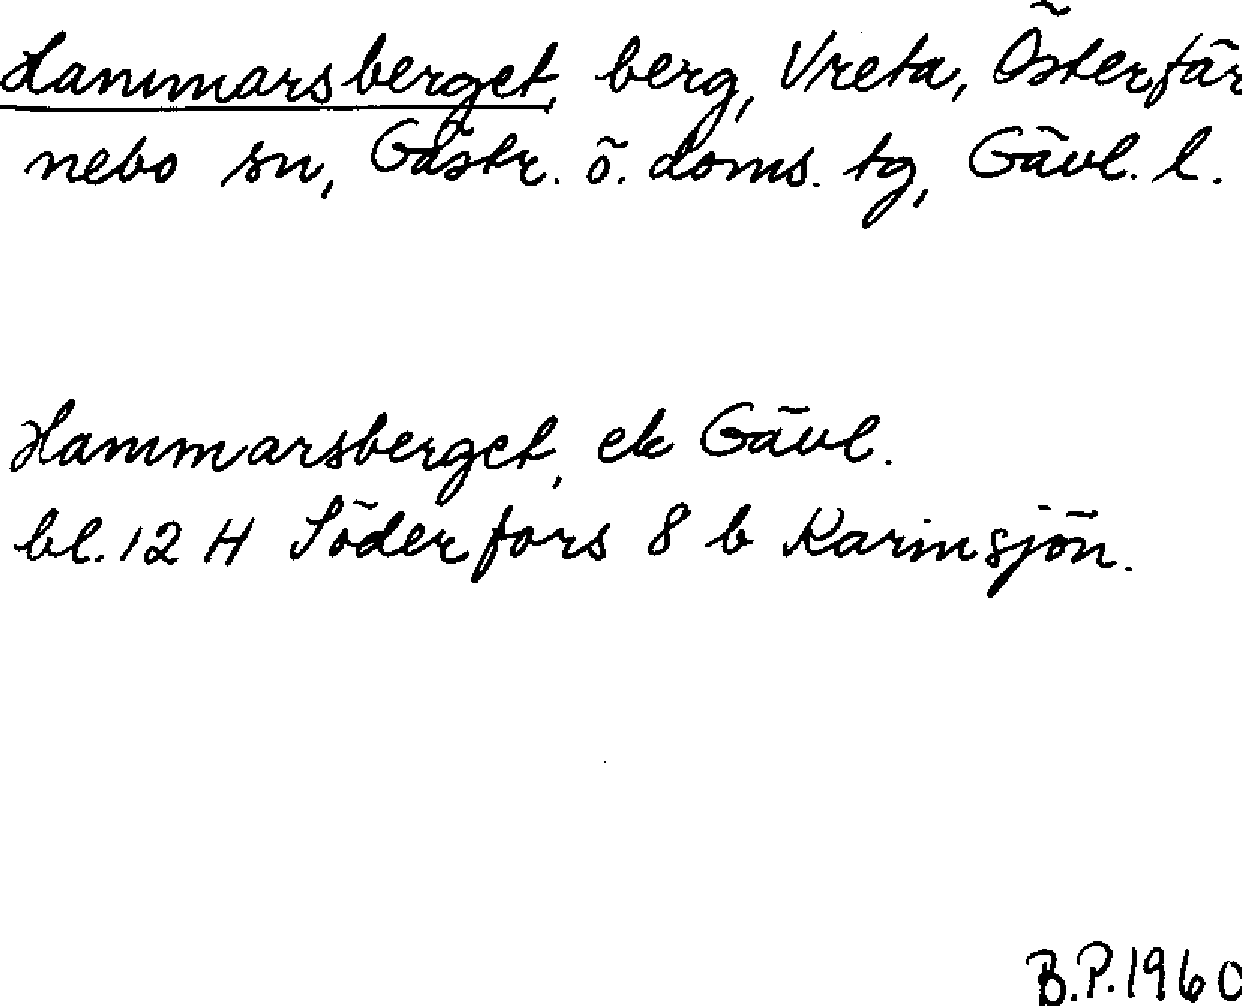 Hammarsberget, berg, Vreta, Österfär
nebo sn, Gästr. ö. doms. tg, Gävl. l.
Hammarsberget, ek Gävl.
bl. 12 H Söderfors 8 b Karinsjön.
B.P. 1960